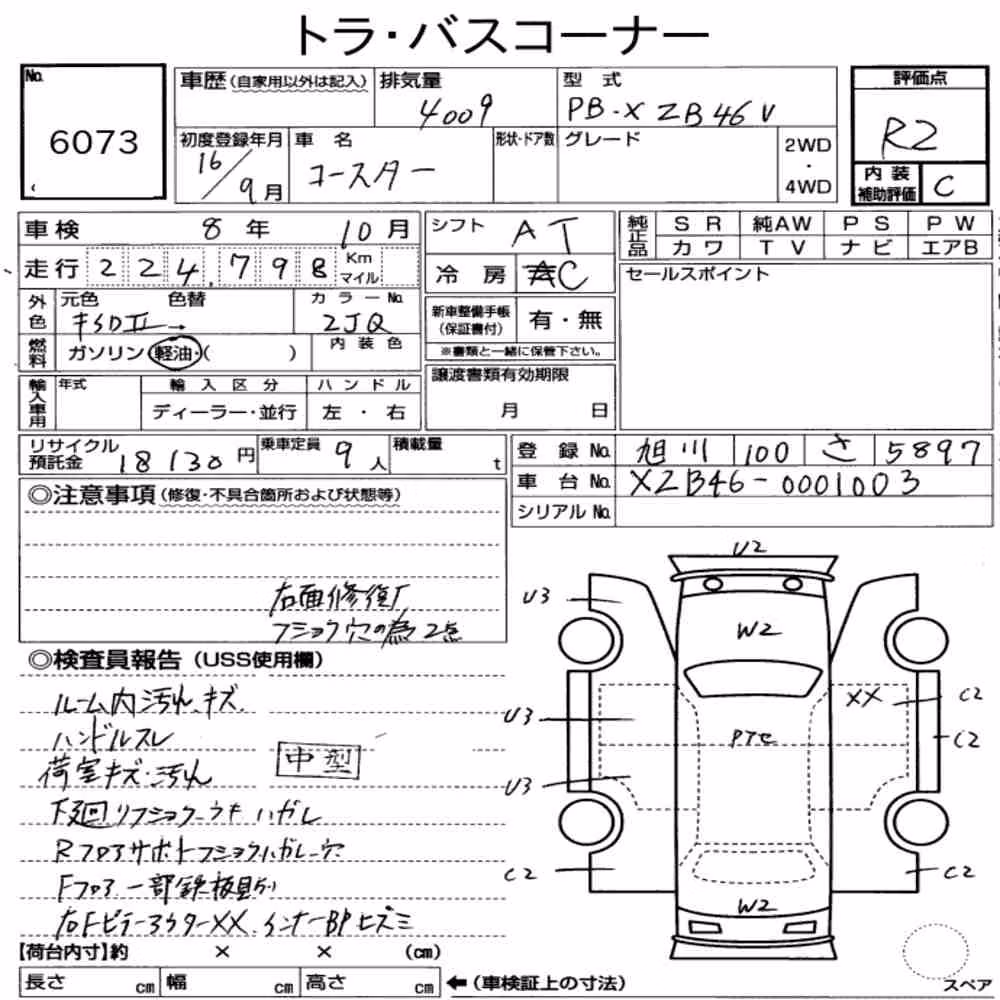 トラ・バスコーナー
No. 6073
車歴(自家用以外は記入) 排気量 4009 型式 PB-XZB46V 評価点 R2
初度登録年月 16/9月 車名 コースター 形状・ドア数 グレード 2WD・4WD 内装補助評価 C
車検 8年 10月 シフト AT 純正品 SR 純AW PS PW
カワ TV ナビ エアB
走行 224,798 Km マイル 冷房 AC セールスポイント
外色 元色 色替 カラーNo. 2JQ
新車整備手帳(保証書付) 有・無
※書類と一緒に保管下さい。
燃料 ガソリン 軽油・( ) 内装色
輸入車用 年式 輸入区分 ハンドル 譲渡書類有効期限
ディーラー・並行 左・右 月 日
リサイクル預託金 18130円 乗車定員 9人 積載量 t
登録No. 旭川 100 さ 5897
車台No. XZB46-0001003
シリアルNo.
◎注意事項(修復・不具合箇所および状態等)
右面修復有
フショク穴の為2点
◎検査員報告(USS使用欄)
ルーム内汚れ、キズ
ハンドルスレ
荷室キズ・汚れ
中型
下廻りフショク ハガレ
RフロアサポートフショクハガレY穴
Fフロア一部鉄板
右FピラーアウターXX.インナーBPヒズミ
U2
U3
W2
XX
C2
U3
C2
U3
C2
C2
W2
【荷台内寸】約 × × (cm)
長さ cm 幅 cm 高さ cm ←(車検証上の寸法)
スペア